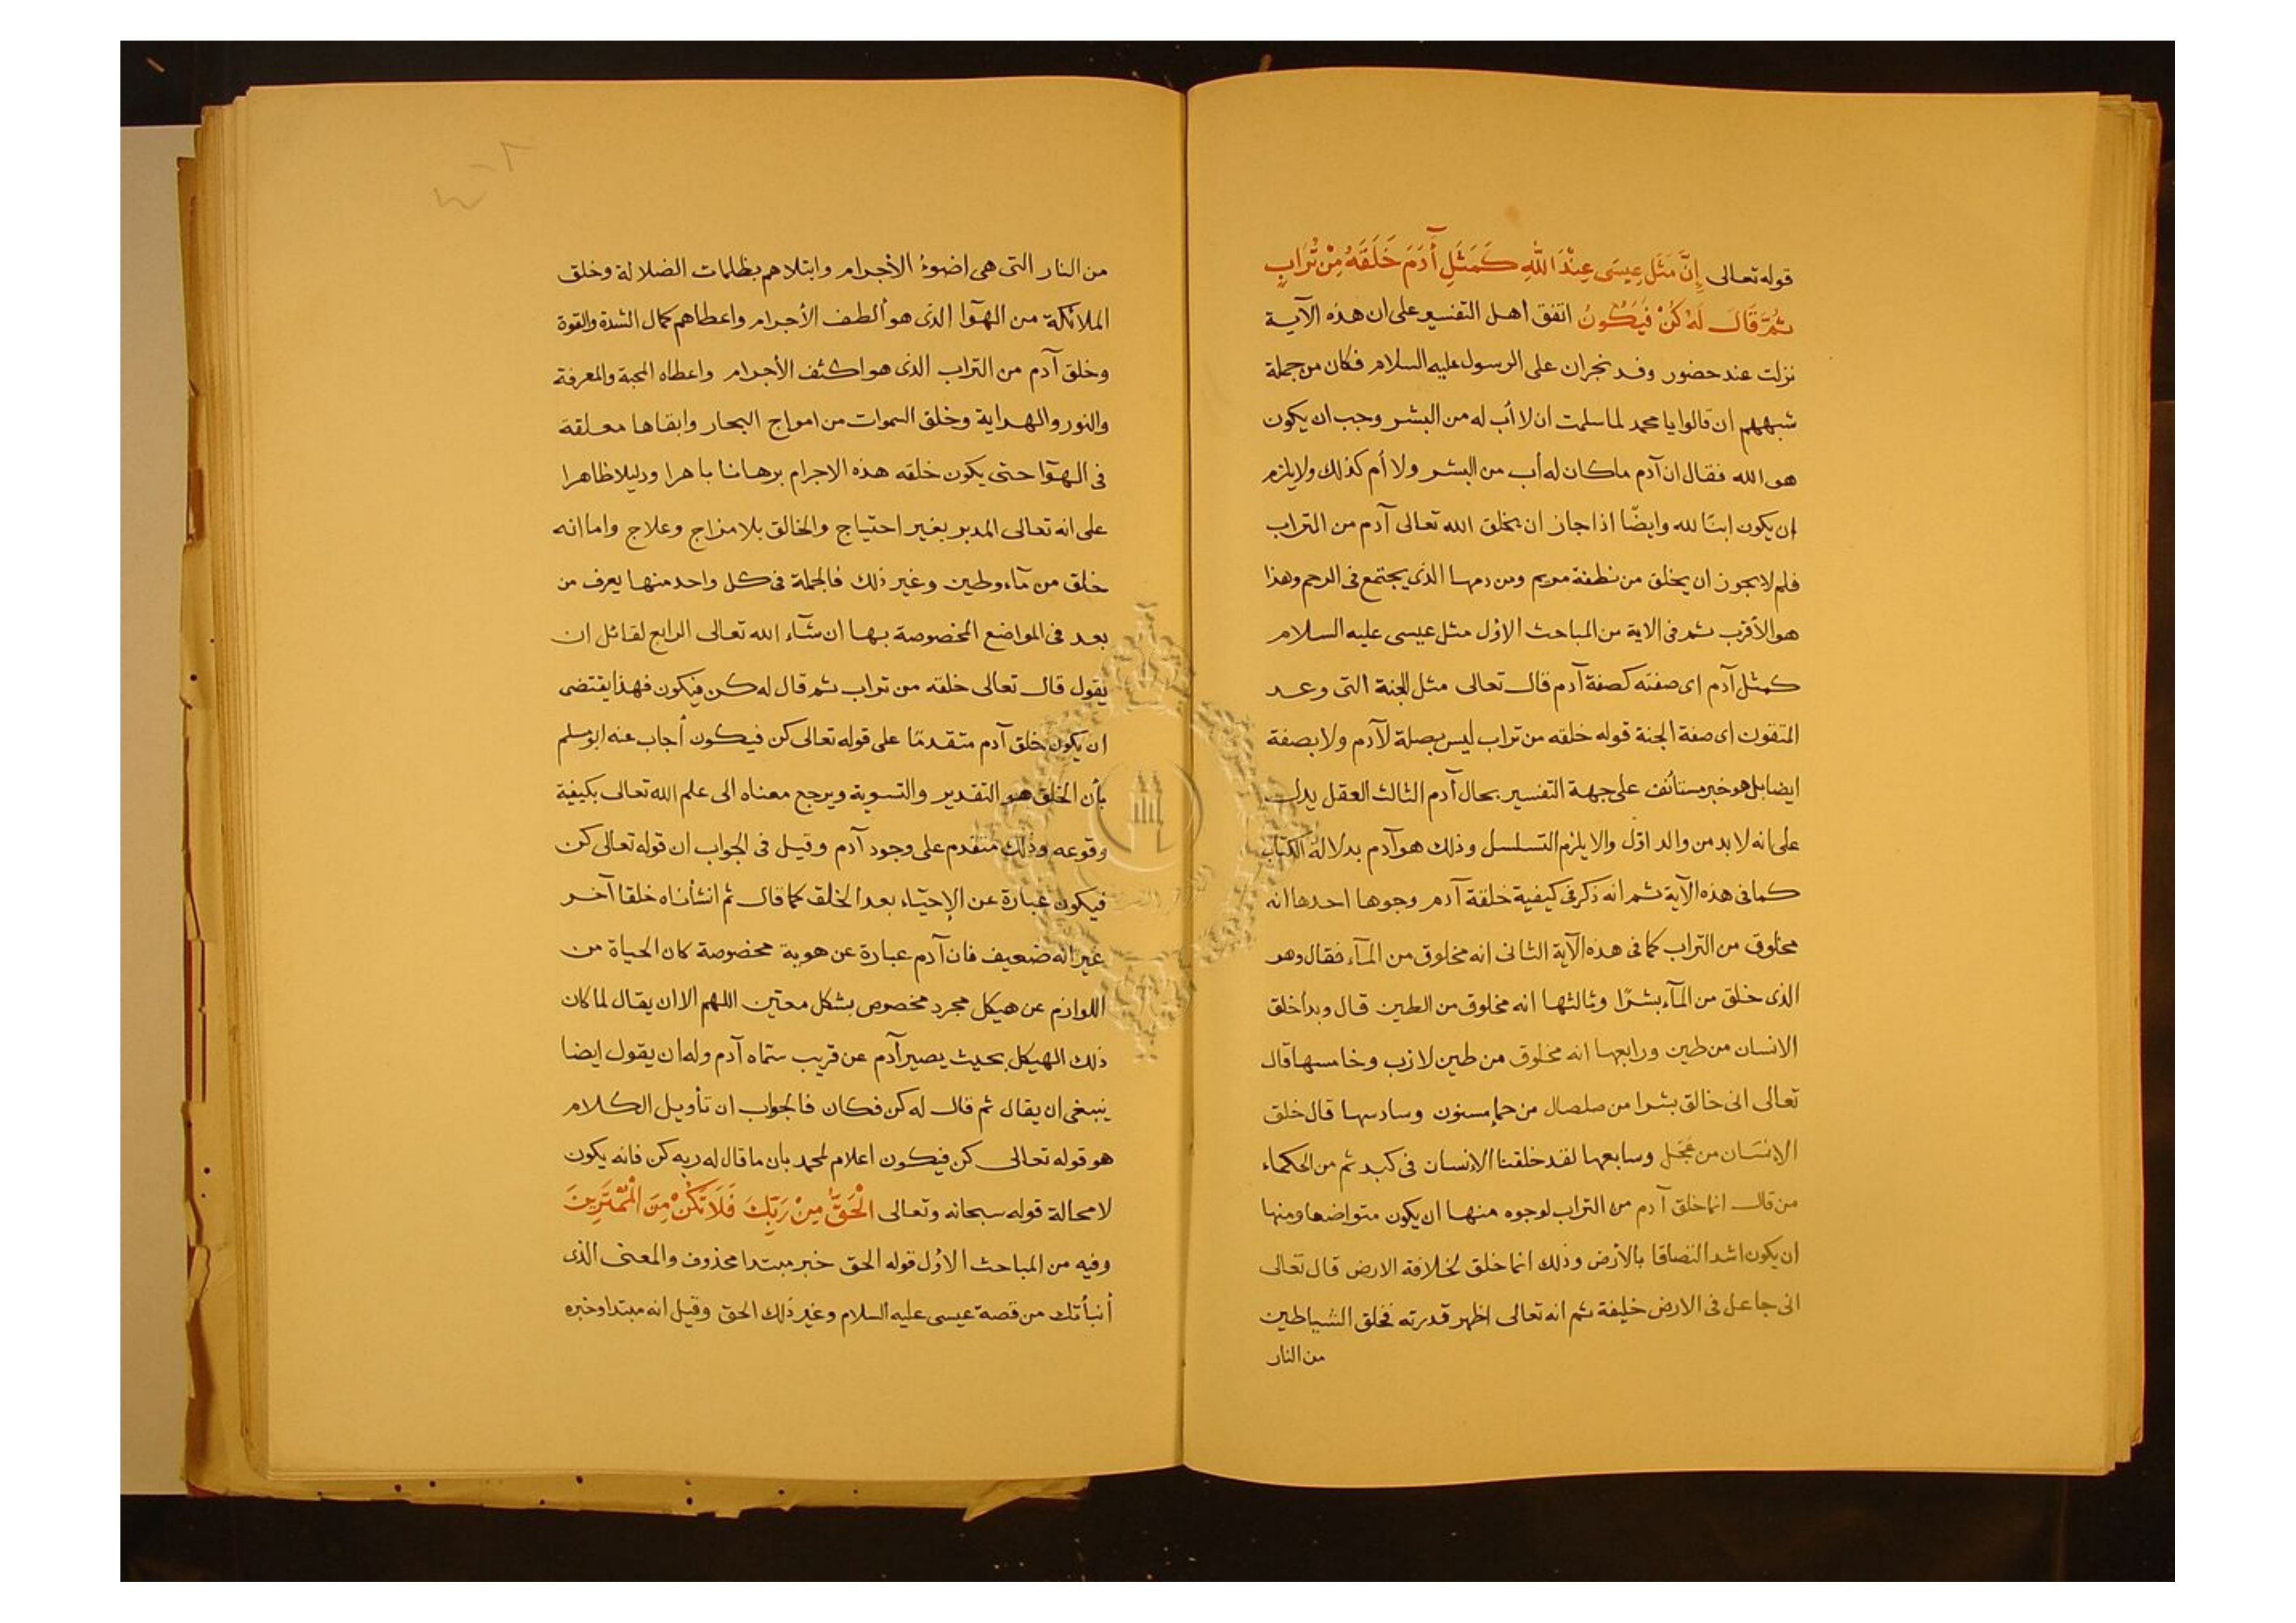 قوله تعالى إِنَّ مَثَلَ عِيسَى عِنْدَ اللهِ كَمَثَلِ آدَمَ خَلَقَهُ مِنْ تُرَابٍ
ثُمَّ قَالَ لَهُ كُنْ فَيَكُونُ اتفق اهل التفسير على ان هذه الآية
نزلت عند حضور وفد نجران على الرسول عليه السلام فكان من جملة
شبههم ان قالوا يا محمد لما سلمت ان لا أب له من البشر وجب ان يكون
هو الله فقال ان آدم ما كان له أب من البشر ولا أم كذلك ولا يلزم
ان يكون ابنًا لله وايضًا اذا جاز ان يخلق الله تعالى آدم من التراب
فلم لا يجوز ان يخلق من نطفة مريم ومن دمها الذى يجتمع فى الرحم وهذا
هو الأقرب ثم فى الاية من المباحث الاوّل مثل عيسى عليه السلام
كمثل آدم اى صفته كصفة آدم قال تعالى مثل الجنة التى وعد
المتقون اى صفة الجنة قوله خلقه من تراب ليس بصلة لآدم ولا بصفة
ايضا بل هو خبر مستأنف على جهة التفسير بحال آدم الثالث العقل يدل
على انه لا بد من والد اوّل والا يلزم التسلسل وذلك هو آدم بدلالة الكتاب
كما فى هذه الآية ثم انه ذكر فى كيفية خلقة آدم وجوها احدها انه
مخلوق من التراب كما فى هذه الآية الثانى انه مخلوق من المآء فقال وهو
الذى خلق من المآء بشرًا وثالثها انه مخلوق من الطين قال وبدأ خلق
الانسان من طين ورابعها انه مخلوق من طين لازب وخامسها قال
تعالى انى خالق بشرا من صلصال من حمإ مسنون وسادسها قال خلق
الإنسَان من عَجَل وسابعها لقد خلقنا الإنسان فى كبد ثم من الحكماء
من قال انما خلق آدم من التراب لوجوه منها ان يكون متواضعا ومنها
ان يكون اشد التصاقا بالأرض وذلك انما خلق لخلافة الارض قال تعالى
انى جاعل فى الارض خليفة ثم انه تعالى اظهر قدرته فخلق الشياطين
من النار
من النار التى هى اضوءُ الأجرام وابتلاهم بظلمات الضلالة وخلق
الملائكة من الهوآ الذى هو ألطف الأجرام واعطاهم كمال الشدة والقوة
وخلق آدم من التراب الذى هو اكثف الأجرام واعطاه المحبة والمعرفة
والنور والهداية وخلق السموات من امواج البحار وابقاها معلقة
فى الهوآ حتى يكون خلقه هذه الاجرام برهانا باهرا ودليلا ظاهرا
على انه تعالى المدبر بغير احتياج والخالق بلا مزاج وعلاج واما انه
خلق من مآء وطين وغير ذلك فالجملة فى كل واحد منها يعرف من
بعد فى المواضع المخصوصة بها ان شآء الله تعالى الرابع لقائل ان
يقول قال تعالى خلقه من تراب ثم قال له كن فيكون فهذا يقتضى
ان يكون خلق آدم متقدمًا على قوله تعالى كن فيكون أجاب عنه ابو مسلم
بأن الخلق هو التقدير والتسوية ويرجع معناه الى علم الله تعالى بكيفية
وقوعه وذلك متقدم على وجود آدم وقيل فى الجواب ان قوله تعالى كن
فيكون عبارة عن الإحيآء بعد الخلق كما قال ثم انشأناه خلقا آخر
غير انه ضعيف فان آدم عبارة عن هوية مخصوصة كان الحياة من
اللوازم عن هيكل مجرد مخصوص بشكل معيّن اللهم الا ان يقال لما كان
ذلك الهيكل بحيث يصير آدم عن قريب سمّاه آدم وله ان يقول ايضا
ينبغى ان يقال ثم قال له كن فكان فالجواب ان تأويل الكلام
هو قوله تعالى كن فيكون اعلام لمحمد بان ما قال له ربه كن فانه يكون
لا محالة قوله سبحانه وتعالى الْحَقُّ مِنْ رَبِّكَ فَلَا تَكُنْ مِنَ الْمُمْتَرِينَ
وفيه من المباحث الاوّل قوله الحق خبر مبتدا محذوف والمعنى الذى
أنبأتك من قصة عيسى عليه السلام وغير ذلك الحق وقيل انه مبتدا وخبره